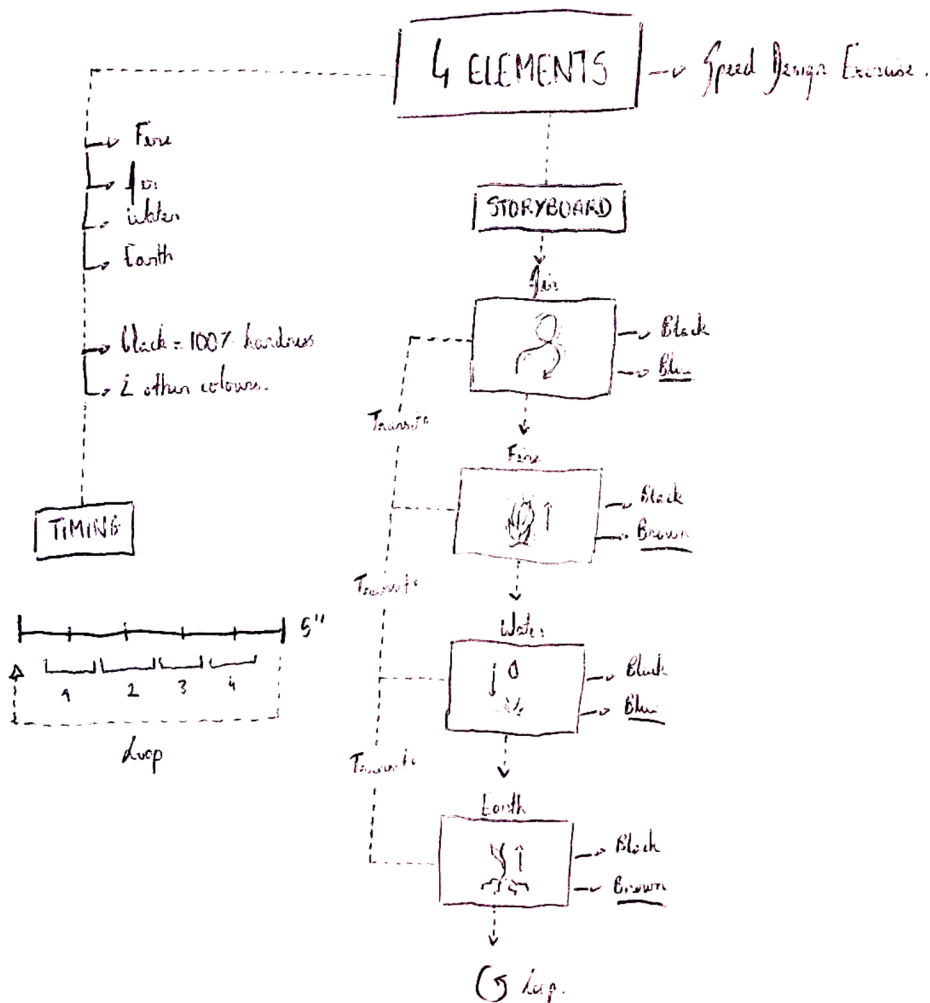 4 ELEMENTS
Speed Design Exercise.
Fire
Air
Water
Earth
black = 100% hardness
2 other colours.
TIMING
5"
1 2 3 4
Loop
STORYBOARD
Air
Black
Blue
Transit°
Fire
Black
Brown
Transit°
Water
Black
Blue
Transit°
Earth
Black
Brown
Loop.